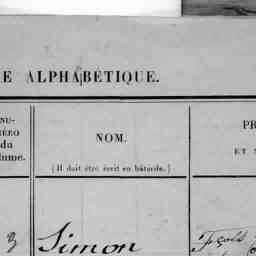 E ALPHABÉTIQUE.
NU-
MÉRO
du
lume.
NOM.
(Il doit être écrit en bâtarde.)
PR
ET S
3 Simon Fçois